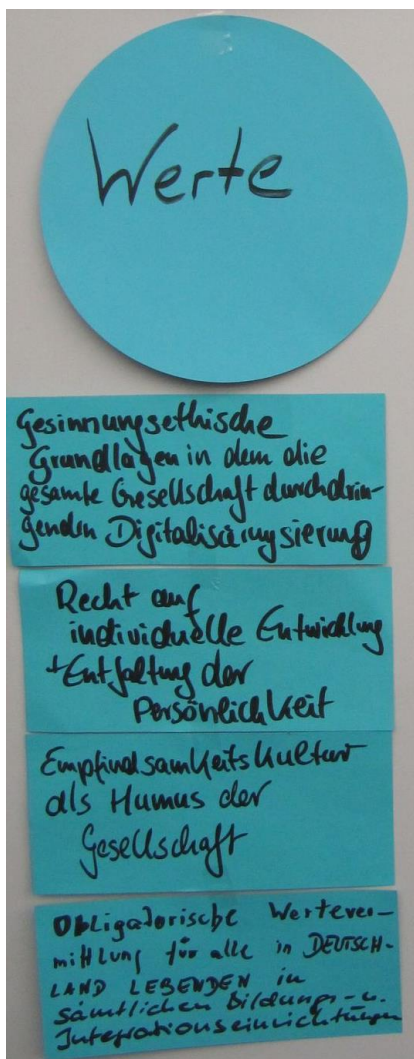 Werte
Gesinnungsethische
Grundlagen in dem die
gesamte Gesellschaft durchdrin-
genden Digitalisierungsierung
Recht auf
individuelle Entwicklung
+Entfaltung der
Persönlichkeit
Empfindsamkeitskultur
als Humus der
Gesellschaft
Obligatorische Wertever-
mittlung für alle in DEUTSCH-
LAND LEBENDEN in
sämtlichen Bildungs- u.
Integrationseinrichtungen